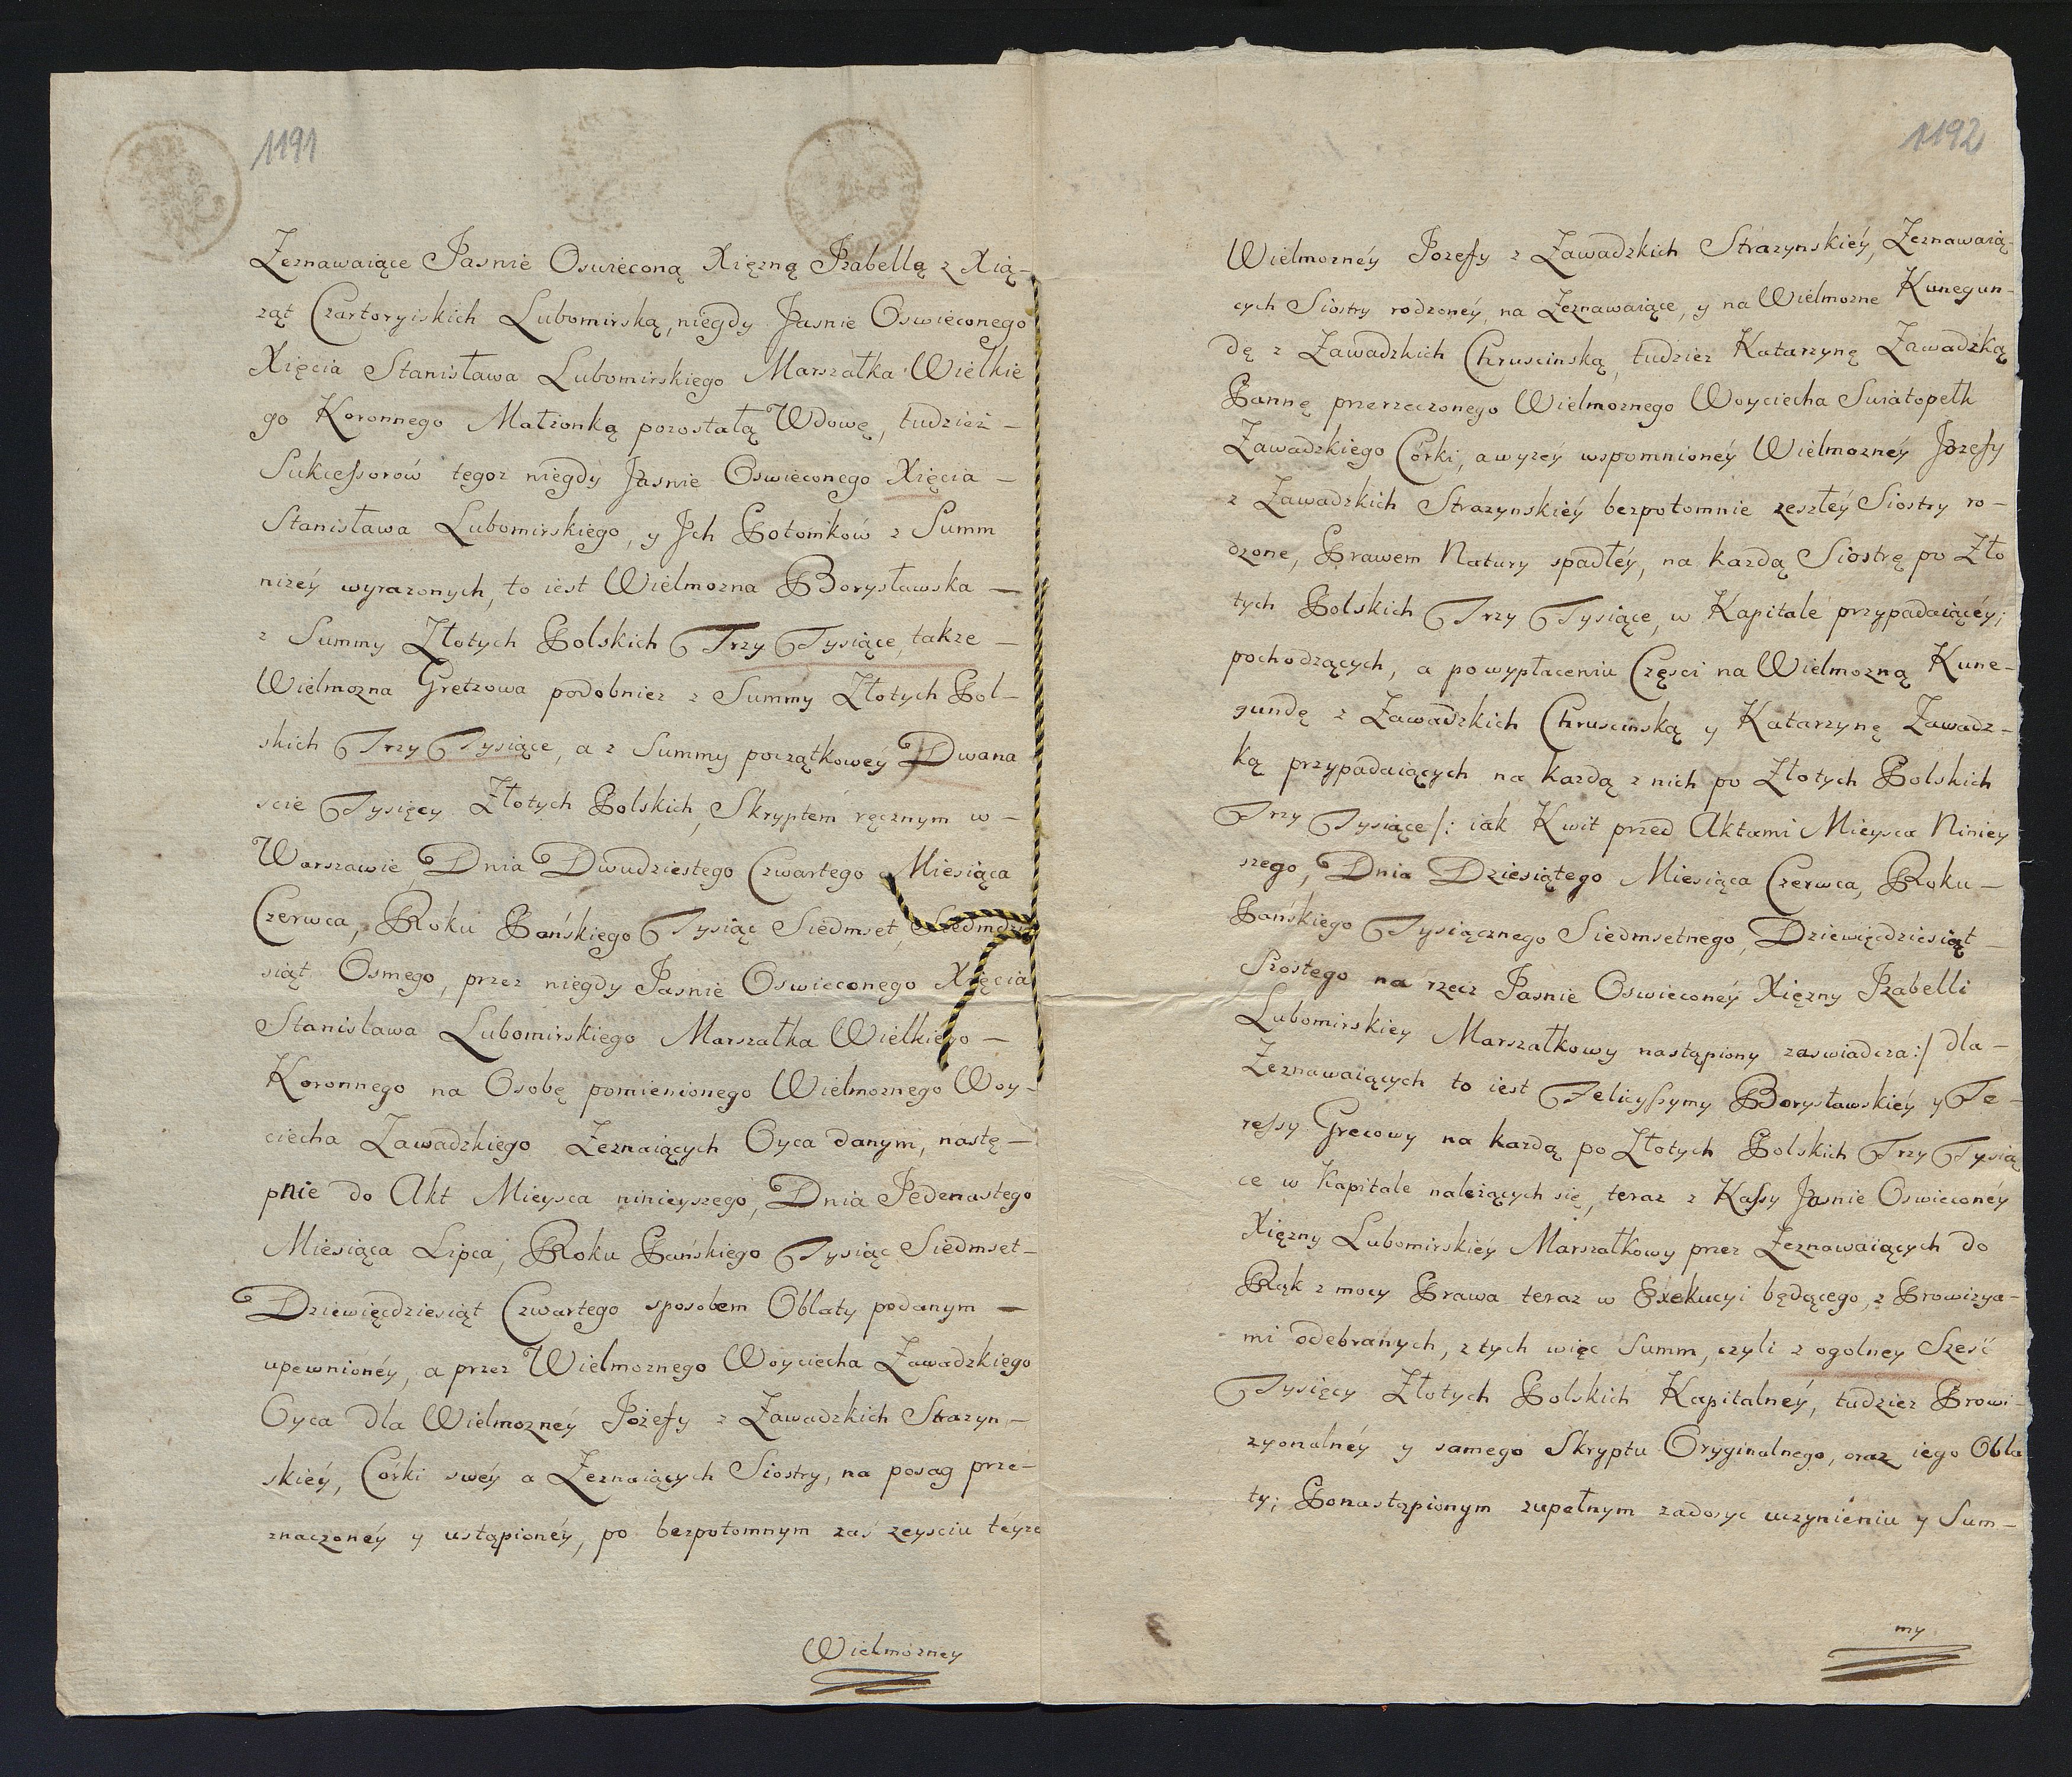 1191
Zeznawaiące Jasnie Oswieconą Xięzną Izabellą z Xią-
ząt Czartoryiskich Lubomirską, niegdy Jasnie Oswieconego
Xięcia Stanisława Lubomirskiego Marszałka Wielkie
go Koronnego Małzonką pozostałą Wdowę, tudziez -
Sukcessorów tegoz niegdy Jasnie Oswieconego Xięcia -
Stanisława Lubomirskiego, y Jch Potomków z Summ
nizéy wyrazonych, to iest Wielmozna Borysławska -
z Summy Złotych Polskich Trzy Tysiące, takze -
Wielmozna Gretzowa podobniez z Summy Złotych Pol-
skich Trzy Tysiące, a z Summy początkowéy Dwana
scie Tysięcy Złotych Polskich, Skryptem ręcznym w -
Warszawie, Dnia Dwudziestego Czwartego Miesiąca
Czerwca, Roku Pańskiego Tysiąc Siedmset, Siedmdzie
siąt Osmego, przez niegdy Jasnie Oswieconego Xięcia
Stanisława Lubomirskiego Marszałka Wielkiego -
Koronnego na Osobę pomienionego Wielmoznego Woy-
ciecha Zawadzkiego Zeznaiących Oyca danym, nastę-
pnie do Akt Mieysca ninieyszego, Dnia Jedenastego
Miesiąca Lipca, Roku Pańskiego Tysiąc Siedmset-
Dziewięcdziesiąt Czwartego sposobem Oblaty podanym -
upewnionéy, a przez Wielmoznego Woyciecha Zawadzkiego
Oyca dla Wielmoznéy Józefy z Zawadzkich Strazyn-
skiéy, Córki swéy a Zeznaiących Siostry, na posag prze-
znaczonéy y ustąpionéy, po bezpotomnym zaś zeysciu téyze
Wielmozney
1192
Wielmoznéy Jozefy z Zawadzkich Strazynskiéy, Zeznawaią-
cych Siostry rodzonéy, na Zeznawaiące, y na Wielmozne Kunegun-
dę z Zawadzkich Chruscinską, tudziez Katarzynę Zawadzką
Pannę przerzeczonego Wielmoznego Woyciecha Swiatopełk
Zawadzkiego Córki, a wyzéy wspomnionéy Wielmoznéy Jozefy
z Zawadzkich Strazynskiéy bezpotomnie zeszłéy Siostry ro-
dzone, Prawem Natury spadłéy, na kazdą Siostrę po Zło
tych Polskich Trzy Tysiące, w Kapitale przypadaiącéy;
pochodzących, a po wypłaceniu Częsci na Wielmozną Kune-
gundę z Zawadzkich Chruscinską y Katarzynę Zawadz-
ką przypadaiących na kazdą z nich po Złotych Polskich
Trzy Tysiące /: iak Kwit przed Aktami Mieysca Niniey
szego, Dnia Dziesiątego Miesiąca Czerwca, Roku -
Pańskiego Tysiącznego Siedmsetnego, Dziewięcdziesiąt -
Szostego na rzecz Jasnie Oswieconéy Xięzny Izabelli
Lubomirskiey Marszałkowy nastąpiony zaswiadcza :/ dla -
Zeznawaiących to iest Felicyssymy Borysławskiéy y Te-
ressy Grecowy na kazdą po Złotych Polskich Trzy Tysią
ce w Kapitale nalezących się, teraz z Kassy Jasnie Oswieconéy
Xięzny Lubomirskiéy Marszałkowy przez Zeznawaiących do
Rąk z mocy Prawa teraz w Exekucyi będącego, z Prowizya-
mi odebranych, z tych więc Summ, czyli z ogolney Sześć
Tysięcy Złotych Polskich Kapitalnéy, tudziez Prowi-
zyonalnéy y samego Skryptu Oryginalnego, oraz iego Obla
ty; Ponastąpionym zupełnym zadosyc uczynieniu y Sum-
my